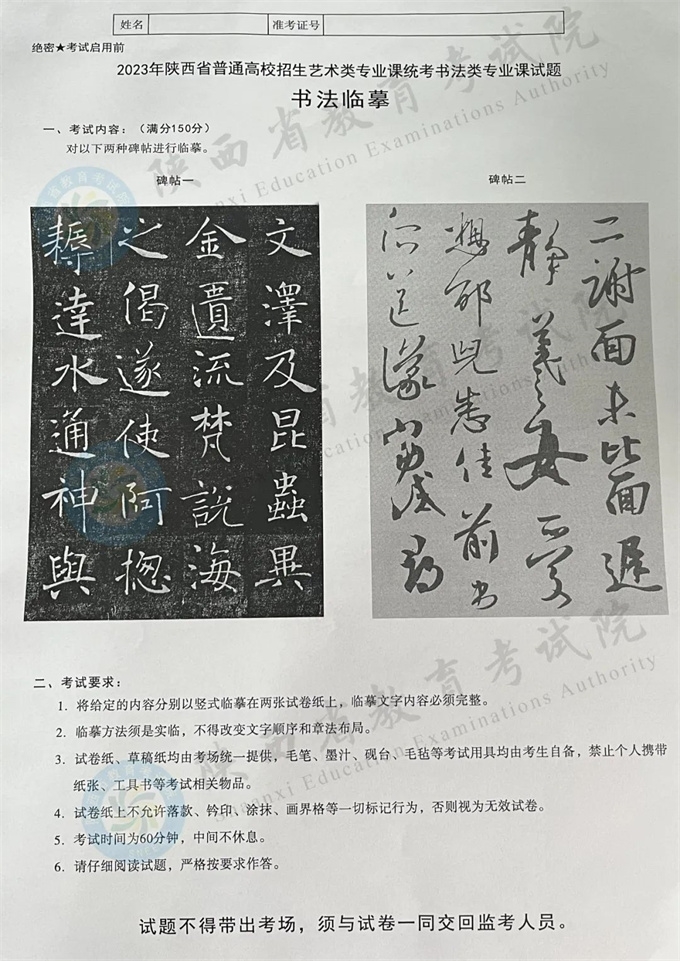 姓名 准考证号
绝密★考试启用前
2023年陕西省普通高校招生艺术类专业课统考书法类专业课试题
书法临摹
一、考试内容：（满分150分）
对以下两种碑帖进行临摹。
碑帖一
文澤及昆蟲異
金匱流梵說海
之偈遂使阿揔
耨達水通神與
碑帖二
二謝面未比面遲
靜羲之女愛
想邵兒悉佳前
所送議當
二、考试要求：
1. 将给定的内容分别以竖式临摹在两张试卷纸上，临摹文字内容必须完整。
2. 临摹方法须是实临，不得改变文字顺序和章法布局。
3. 试卷纸、草稿纸均由考场统一提供，毛笔、墨汁、砚台、毛毡等考试用具均由考生自备，禁止个人携带
纸张、工具书等考试相关物品。
4. 试卷纸上不允许落款、钤印、涂抹、画界格等一切标记行为，否则视为无效试卷。
5. 考试时间为60分钟，中间不休息。
6. 请仔细阅读试题，严格按要求作答。
试题不得带出考场，须与试卷一同交回监考人员。
陕西省教育考试院
Shaanxi Education Examinations Authority
陕西省教育考试院
Shaanxi Education Examinations Authority